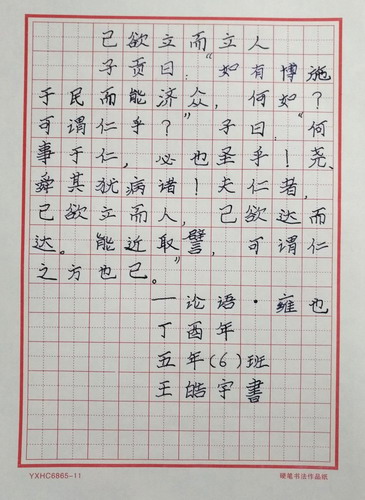 己欲立而立人
子贡曰:“如有博施
于民而能济众,何如?
可谓仁乎?”子曰,“何
事于仁,必也圣乎!尧、
舜其犹病诸!夫仁者,
己欲立而人,己欲达而
达。能近取譬,可谓仁
之方也已。”
—论语·雍也
丁酉年
五年(6)班
王皓宇書
YXHC6865-11 硬笔书法作品纸